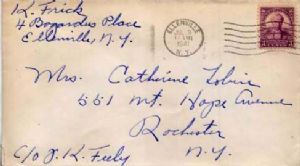 K. Frick
4 Bogardus Place
Ellenville, N.Y.
ELLENVILLE
N.Y.
Mrs. Catherine
551 Mt. Hope Avenue
Rochester
N.Y.
c/o J. K. Feely